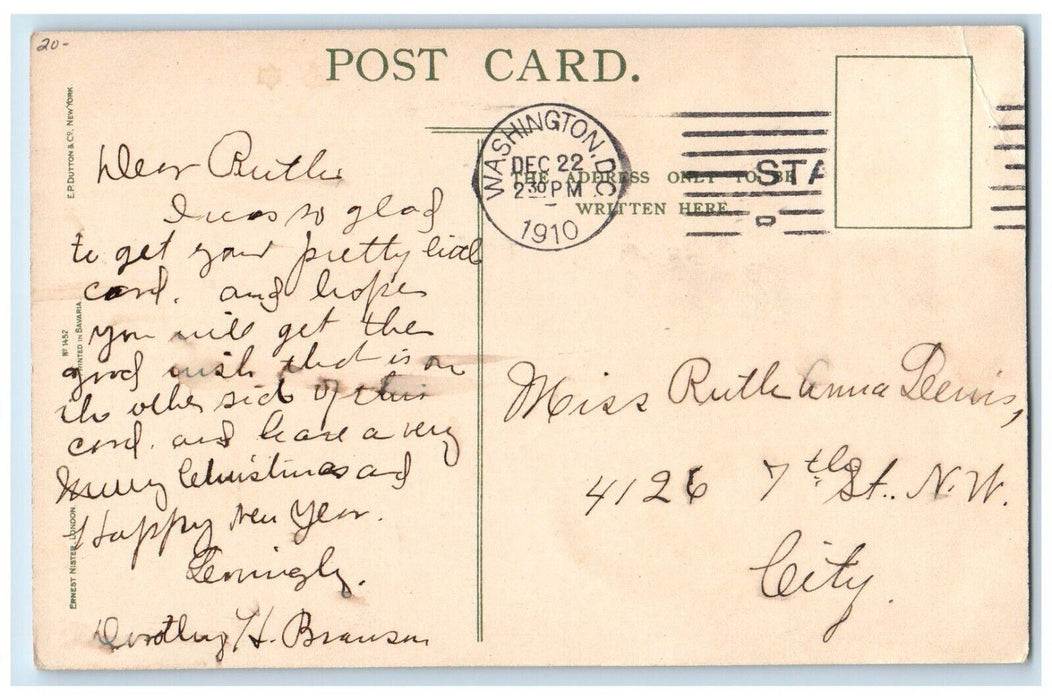 20-
POST CARD.
E.P. DUTTON & CO. NEW YORK
Nº 1452
PRINTED IN BAVARIA.
ERNEST NISTER, LONDON.
WASHINGTON, D.C.
DEC 22
2 30 PM
1910
STA
D
THE ADDRESS ONLY TO BE
WRITTEN HERE
Dear Ruth
I was so glad
to get your pretty little
card. and hope
you will get the
good wish that is on
the other side of this
card. and have a very
Merry Christmas and
Happy New Year.
Lovingly.
Dorothy H. Branson
Miss Ruth Anna Lewis,
4126 7th St. N.W.
City.